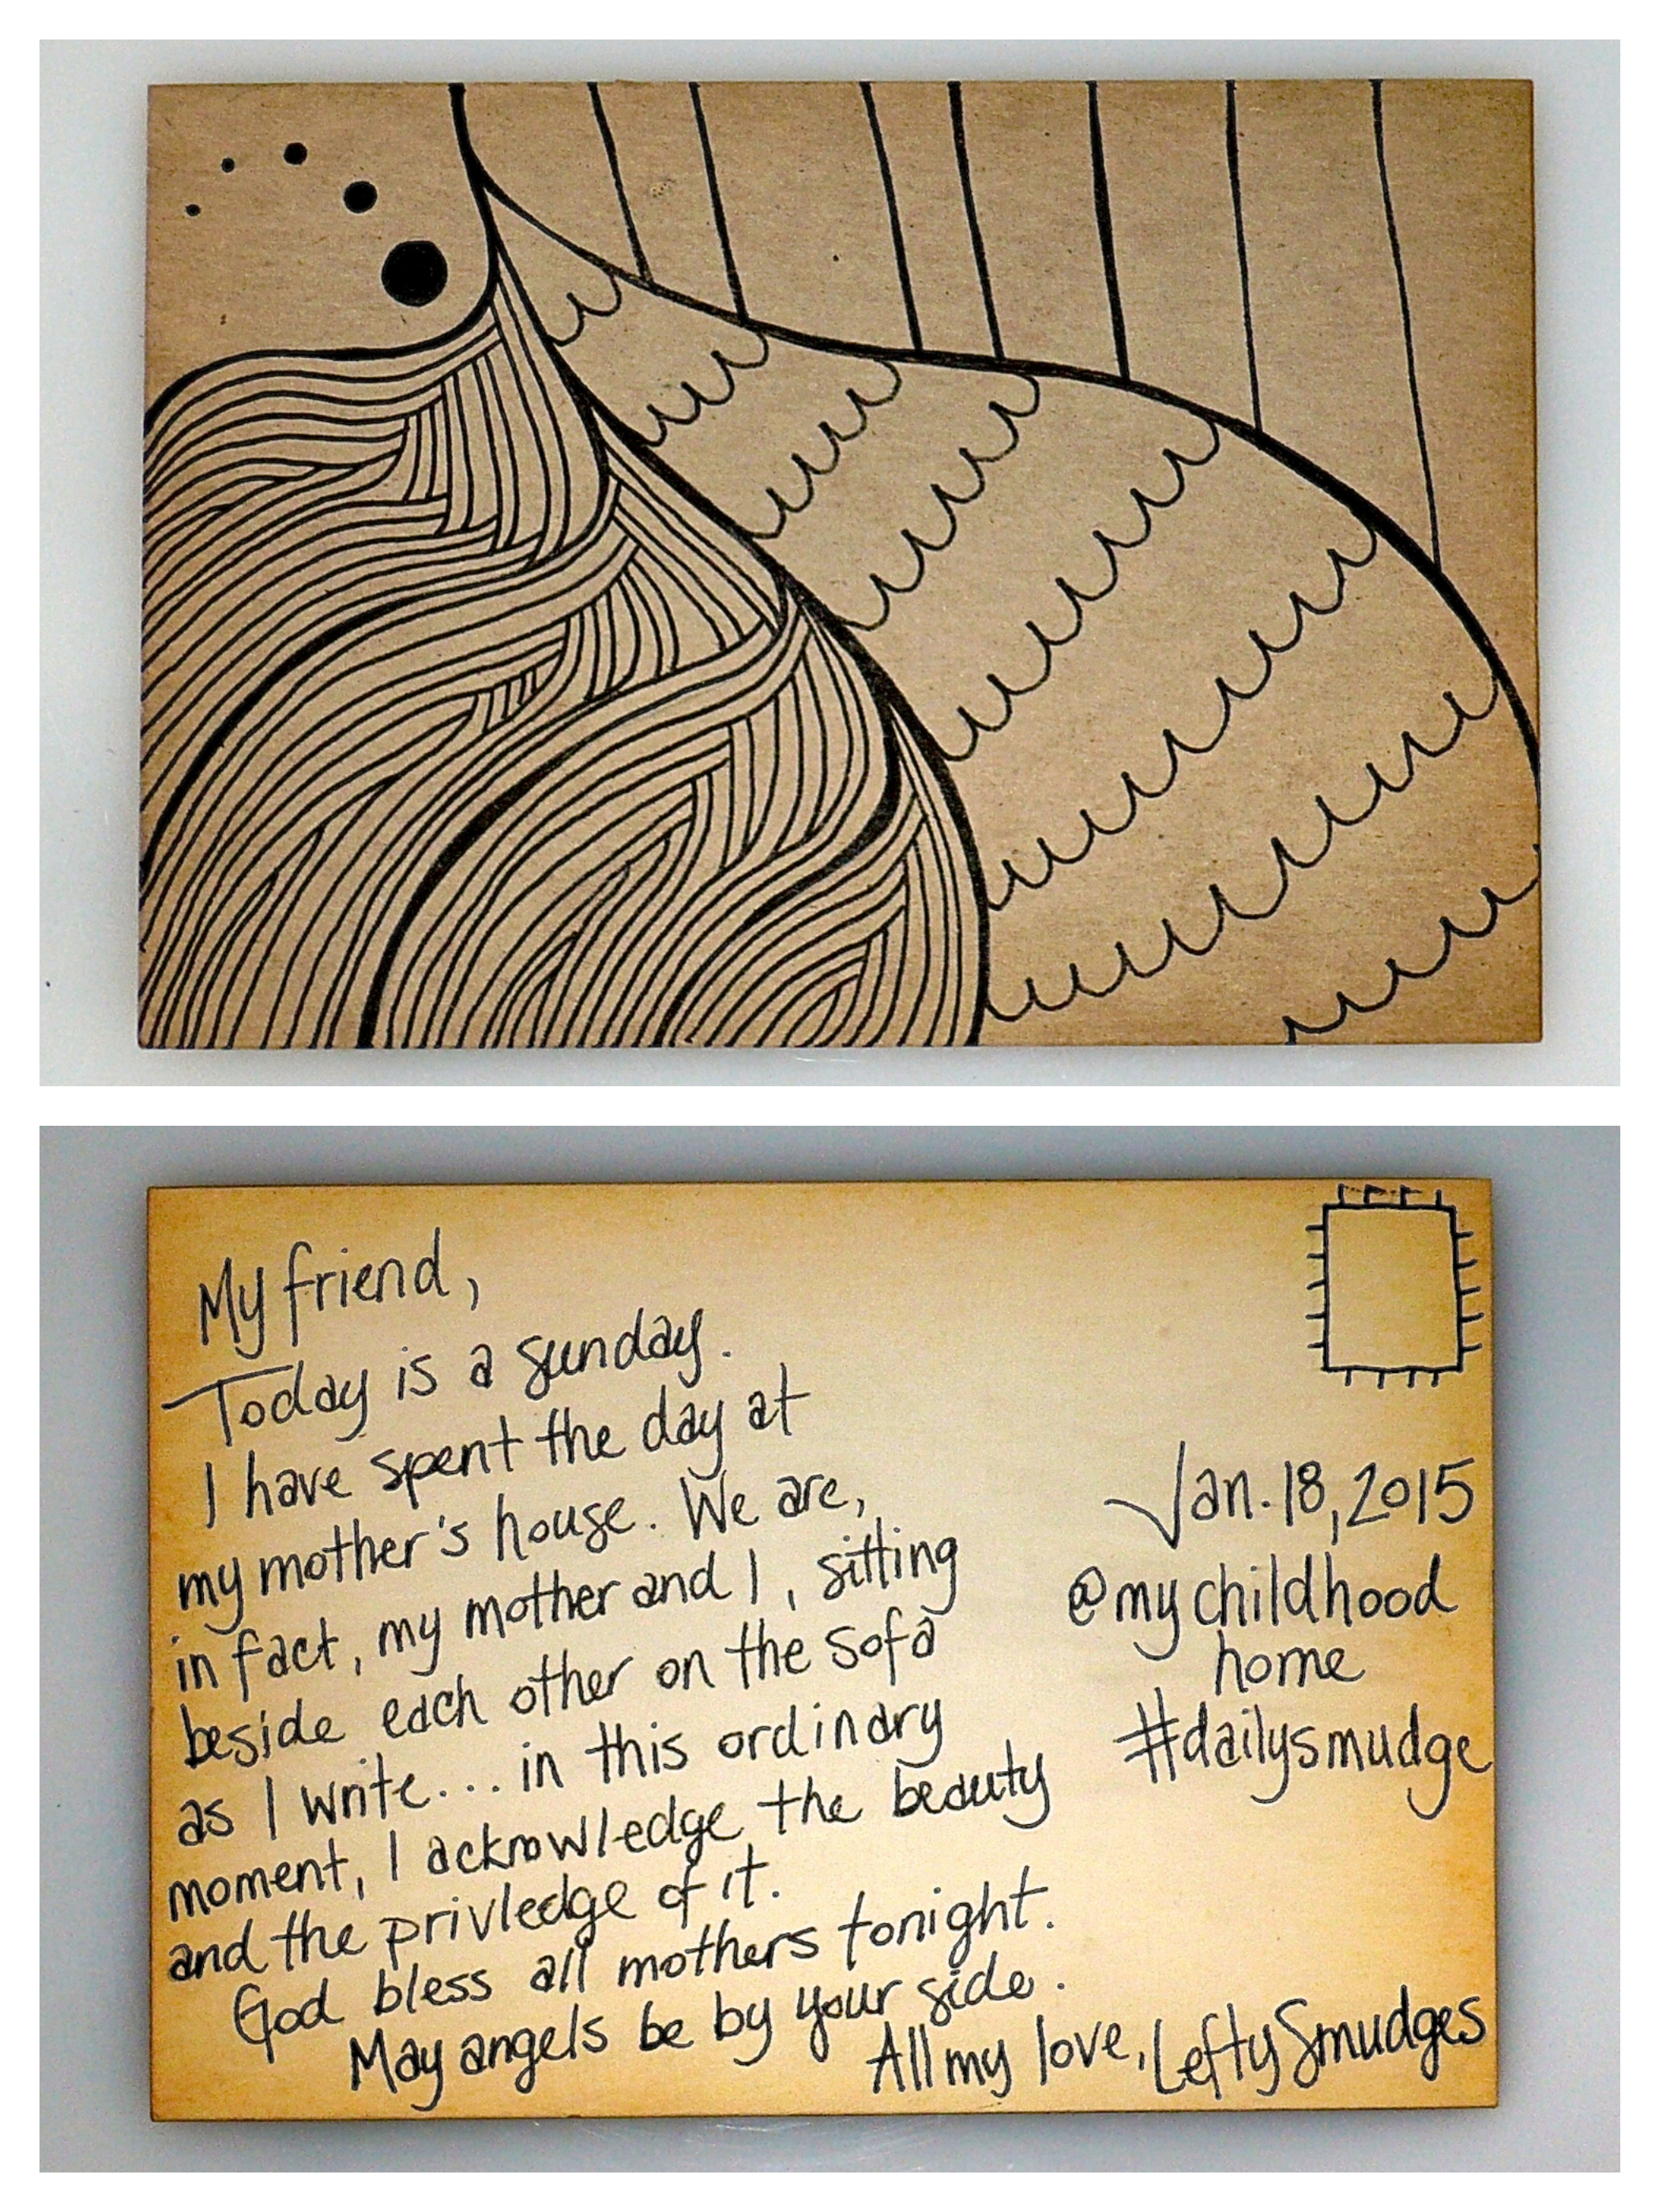 My friend,
Today is a sunday.
I have spent the day at
my mother's house. We are,
in fact, my mother and I, sitting
beside each other on the sofa
as I write... in this ordinary
moment, I acknowledge the beauty
and the privledge of it.
God bless all mothers tonight.
May angels be by your side.
All my love, Lefty Smudges
Jan. 18, 2015
@my childhood
home
#dailysmudge